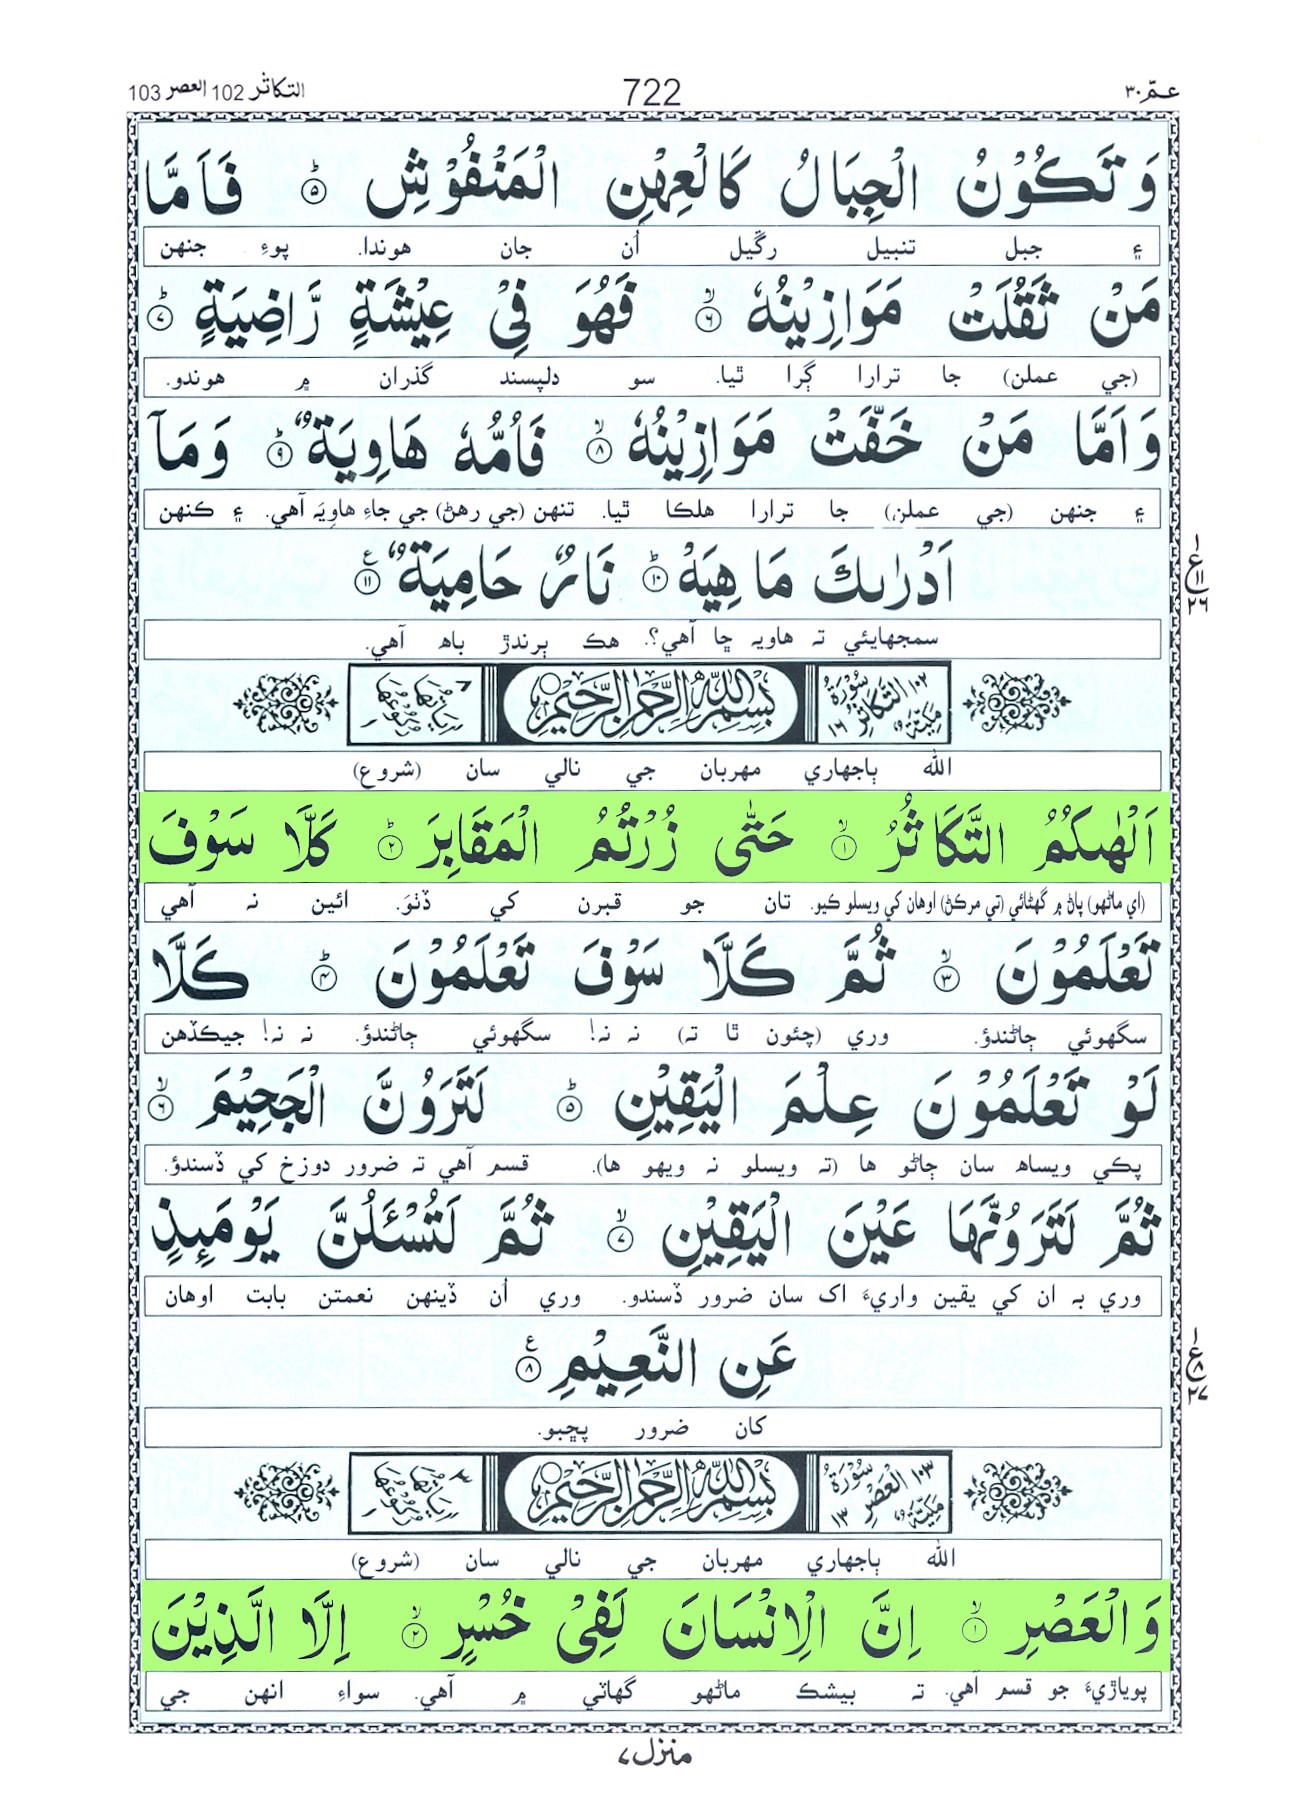 التكاثر 102 العصر 103 722 عمّ ٣٠
وَ تَكُوْنُ الْجِبَالُ كَالْعِهْنِ الْمَنْفُوْشِ ؕ۝۵ فَاَمَّا
۽ جبل تنبيل رڱيل اُن جان هوندا. پوءِ جنهن
مَنْ ثَقُلَتْ مَوَازِيْنُهٗ ۙ۝۶ فَهُوَ فِيْ عِيْشَةٍ رَّاضِيَةٍ ؕ۝۷
(جي عملن) جا ترارا ڳرا ٿيا. سو دلپسند گذران ۾ هوندو.
وَ اَمَّا مَنْ خَفَّتْ مَوَازِيْنُهٗ ۙ۝۸ فَاُمُّهٗ هَاوِيَةٌ ؕ۝۹ وَ مَاۤ
۽ جنهن (جي عملن) جا ترارا هلڪا ٿيا. تنهن (جي رهڻ) جي جاءِ هاوِيَہ آهي. ۽ ڪنهن
اَدْرٰىكَ مَا هِيَهْ ؕ۝۱۰ نَارٌ حَامِيَةٌ ۝۱۱ ع
سمجهايئي تہ هاويہ ڇا آهي؟. هڪ ٻرندڙ باھ آهي.
١ ع ١١ ٢٦
١٠٢ سُوْرَةُ التَّكَاثُرِ مَكِّيَّةٌ ١٦ بِسْمِ اللّٰهِ الرَّحْمٰنِ الرَّحِيْمِ اٰيَاتُهَا ٨ رُكُوْعُهَا ١
الله ٻاجهاري مهربان جي نالي سان (شروع)
اَلْهٰىكُمُ التَّكَاثُرُ ۙ۝۱ حَتّٰى زُرْتُمُ الْمَقَابِرَ ؕ۝۲ كَلَّا سَوْفَ
(اي ماڻهو) پاڻ ۾ گهڻائي (تي مرڪڻ) اوهان کي ويسلو ڪيو. تان جو قبرن کي ڏٺوَ. ائين نہ آهي
تَعْلَمُوْنَ ۙ۝۳ ثُمَّ كَلَّا سَوْفَ تَعْلَمُوْنَ ؕ۝۴ كَلَّا
سگهوئي ڄاڻندؤ. وري (چئون ٿا تہ) نہ نہ! سگهوئي ڄاڻندؤ. نہ نہ! جيڪڏهن
لَوْ تَعْلَمُوْنَ عِلْمَ الْيَقِيْنِ ؕ۝۵ لَتَرَوُنَّ الْجَحِيْمَ ۙ۝۶
پڪي ويساھ سان ڄاڻو ها (تہ ويسلو نہ ويهو ها). قسم آهي تہ ضرور دوزخ کي ڏسندؤ.
ثُمَّ لَتَرَوُنَّهَا عَيْنَ الْيَقِيْنِ ۙ۝۷ ثُمَّ لَتُسْـَٔلُنَّ يَوْمَىِٕذٍ
وري بہ ان کي يقين واريءَ اک سان ضرور ڏسندو. وري اُن ڏينهن نعمتن بابت اوهان
عَنِ النَّعِيْمِ ۝۸ ع
١ ع ٨ ٢٧
کان ضرور پڇبو.
١٠٣ سُوْرَةُ الْعَصْرِ مَكِّيَّةٌ ١٣ بِسْمِ اللّٰهِ الرَّحْمٰنِ الرَّحِيْمِ اٰيَاتُهَا ٣ رُكُوْعُهَا ١
الله ٻاجهاري مهربان جي نالي سان (شروع)
وَ الْعَصْرِ ۙ۝۱ اِنَّ الْاِنْسَانَ لَفِيْ خُسْرٍ ۙ۝۲ اِلَّا الَّذِيْنَ
پوياڙيءَ جو قسم آهي. تہ بيشڪ ماڻهو گهاٽي ۾ آهي. سواءِ انهن جي
منزل ٧